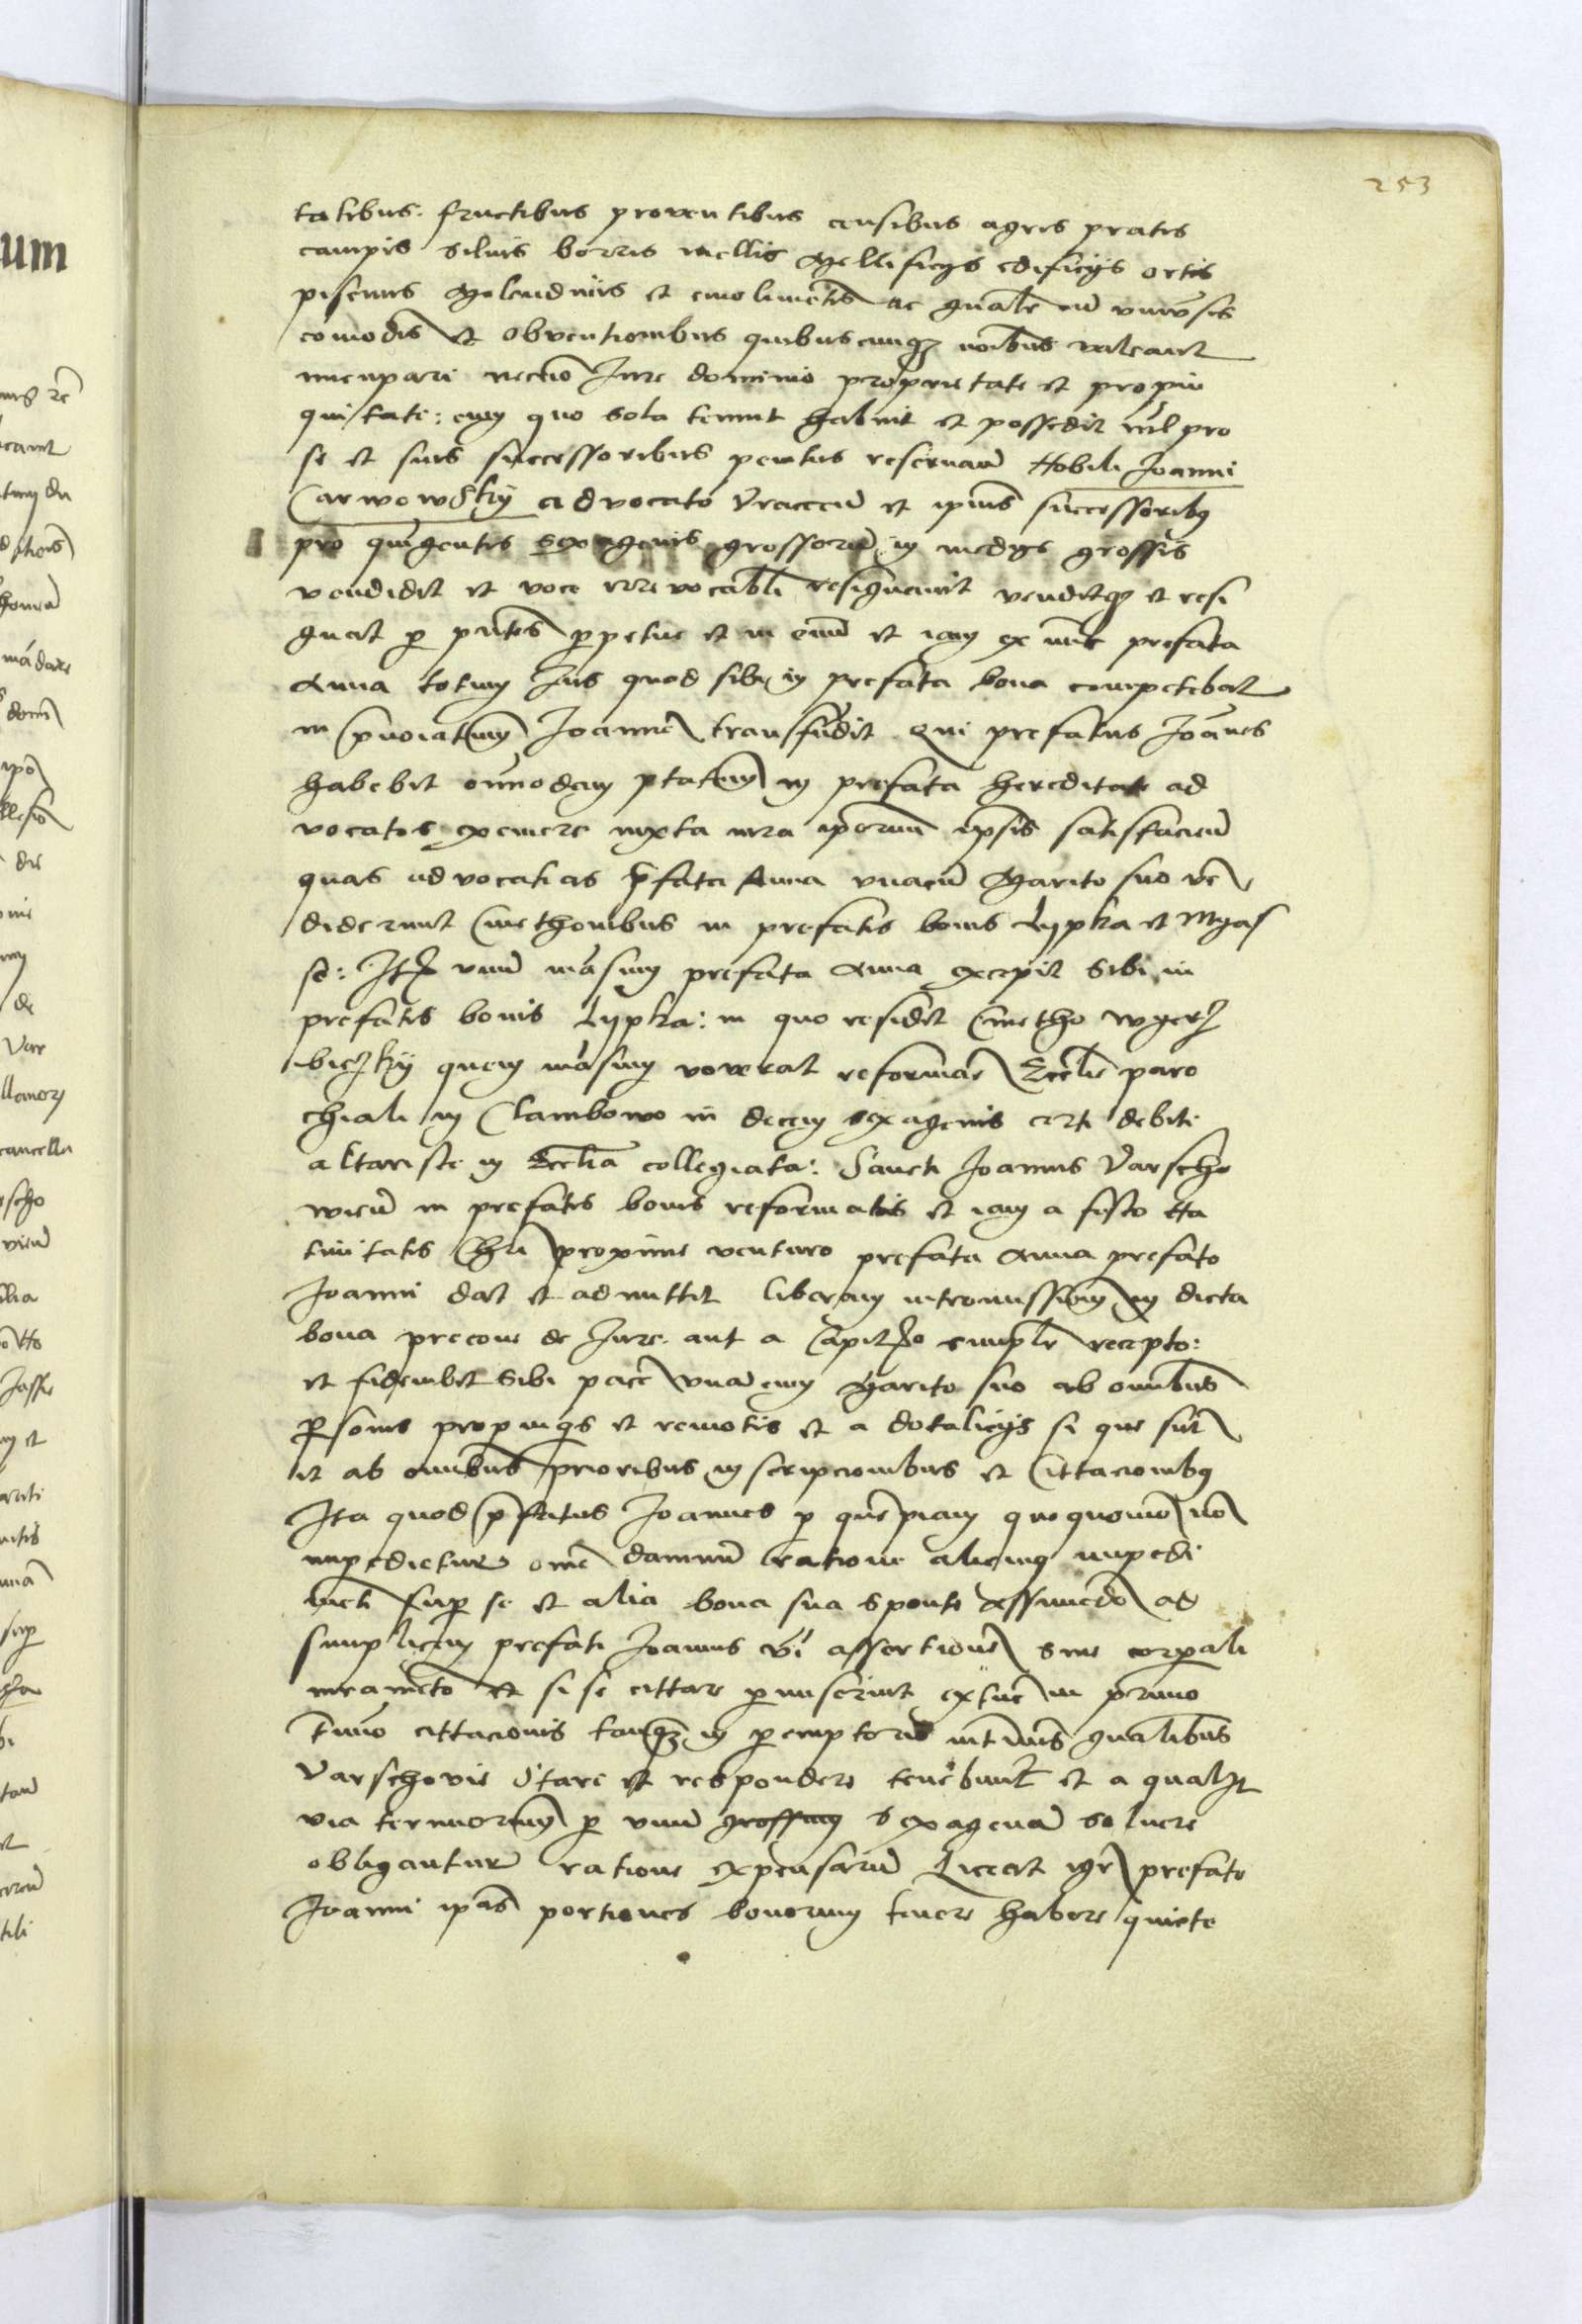 253
tatibus fructibus proventibus censibus agris pratis
campis silvis borris mellis Mellificijs edificijs ortis
piscinis Molendinis et emolimetis ac gnalr cu univsis
comodis et obventionibus quibuscunq noibus valeant
nuncupari necno Jure dominio proprietate et propin
quitate: cum quo sola tenuit habuit et possedit nil pro
se et suis successoribus penitus reservan Nobili Joanni
Carwowsky advocato Vraccen et ipius successoribus
pro quingentis sexagenis grossorum in medijs grossis
vendidit et voce irrevocabli resignavit venditq et resi
gnat p pntes ppetue et in evum et iam ex nunc prefata
Anna totum Jus quod sibi in prefata bona competebat
in pnoiatum Joanne transfudit Qui prefatus Joanes
habebit omnodam ptatem in prefata hereditate ad
vocatos exemere iuxta iura iporum ipsis satisfacien
quas advocatias pfata Anna vnacu Marito suo ven
diderunt Cmethonibus in prefatis bonis Lypka et Myas
se: Ite vnu mansum prefata Anna excepit sibi in
prefatis bonis Lypka: in quo residet Cmetho wyerz
biczky quem mansum voverat reformare Ecclie paro
chiali in Clambowo in decem sexagenis certi debiti
altariste in Ecclia collegiata: Sancti Joannis Varscho
vien in prefatis bonis reformatis et iam a festo Na
tivitatis Chri proxime venturo prefata Anna prefato
Joanni dat et admittit liberam intromissionem in dicta
bona precone de Jure aut a Capitneo simplr recepto:
et fideiubet sibi pace vna cum Marito suo ab omnibus
psonis propinqs et remotis et a dotalicijs si que sut
et ab omnibus prioribus inscripcionibus et Cittacionibus
Ita quod pfatus Joannes p quempiam quoquomo no
impedietur ome damnu ratione alicuius impedi
meti sup se et alia bona sua sponte assumedo ad
simplicem prefati Joannis vi assertione sine corporali
iurameto Et si se cittare pmiserint extuc in primo
tmino cittacionis tanq in peremptorio in tminis gnalibus
Varschovie stare et respondere tenebunt et a qualit
via terminorum p vnam grossum sexagenam solvere
obligantur ratione expensarum Liceat igr prefato
Joanni ipas portiones bonorum tenere habere quiete